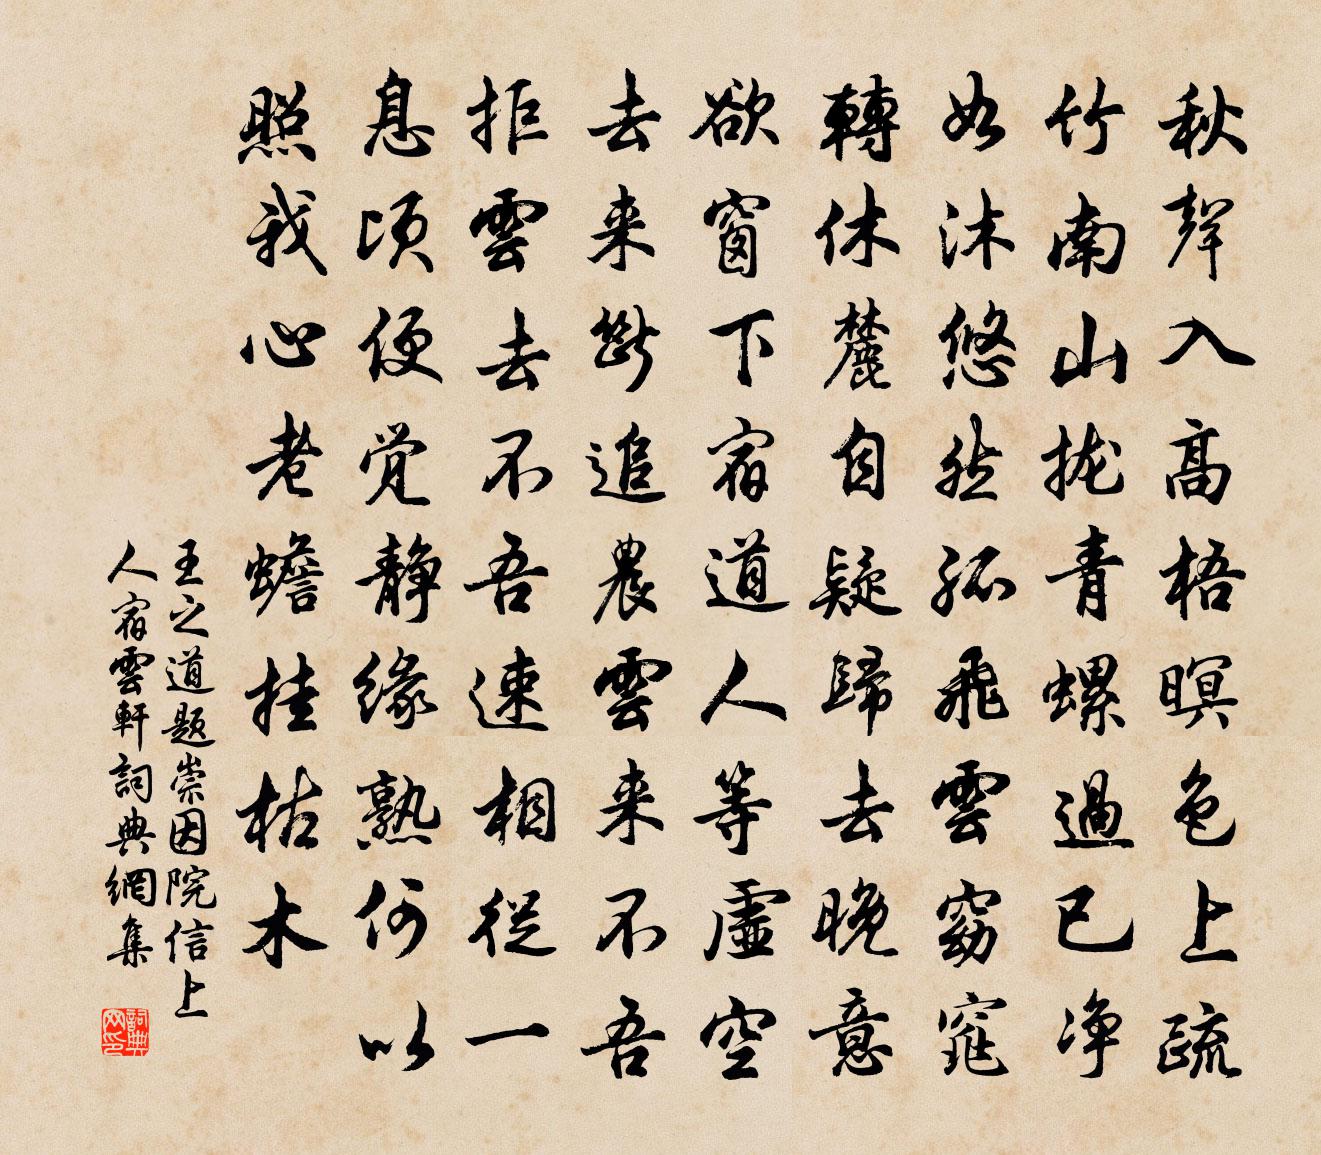 秋聲入高梧暝色上疏
竹南山拢青螺過已净
如沐悠然孤飛雲窈窕
轉休麓自疑歸去晚意
欲窗下宿道人等虛空
去来斷追農雲来不吾
拒雲去不吾速相從一
息頃便觉静缘熟何以
照我心老蟾挂枯木
王之道题崇因院信上
人宿雲軒詞典網集
詞典网印